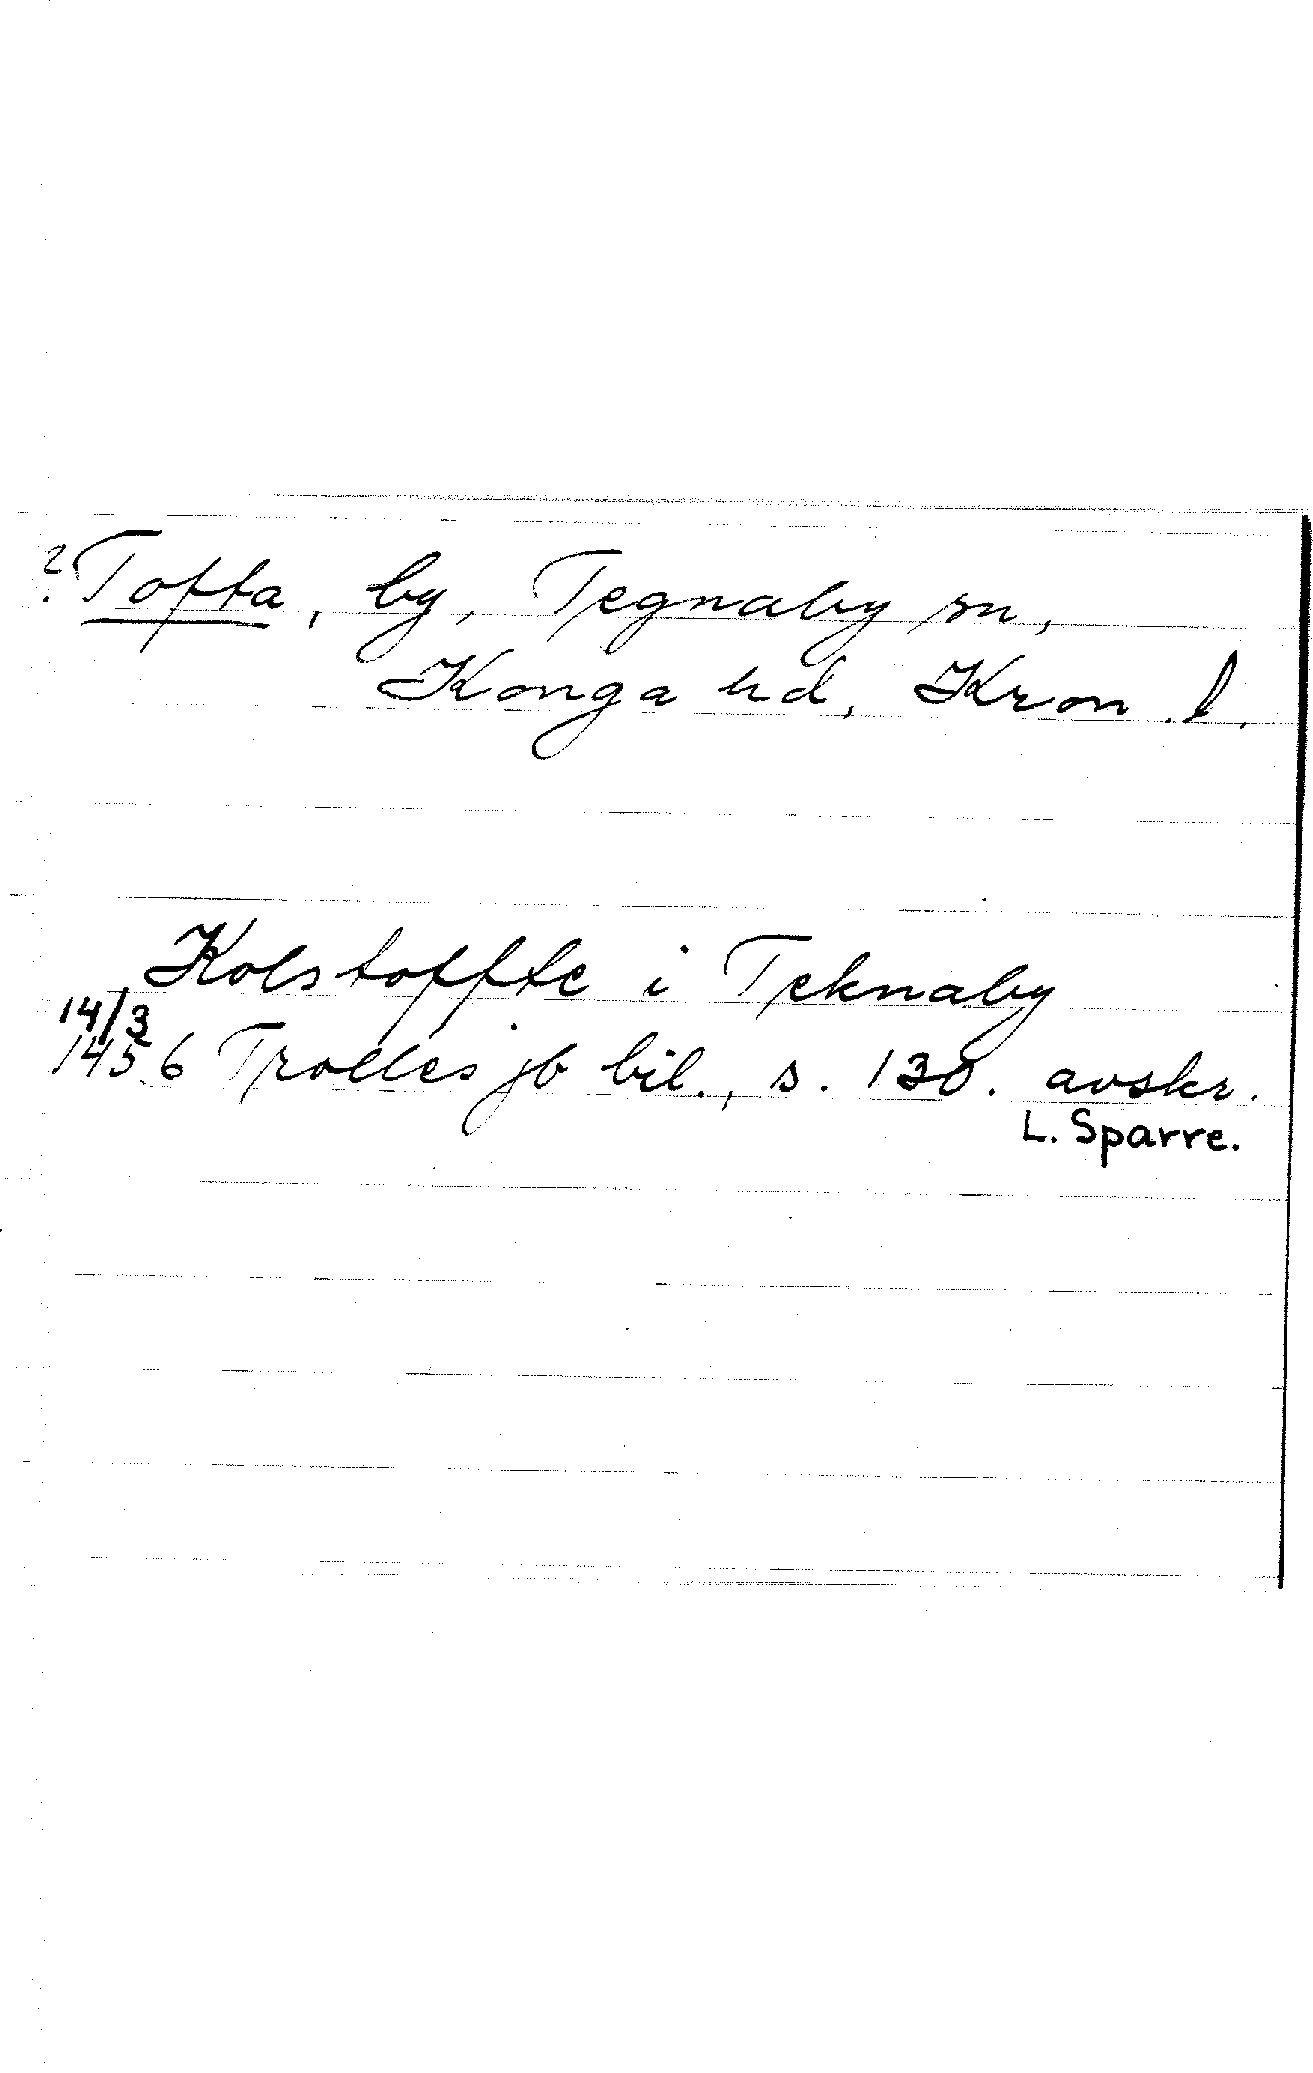 ? Tofta, by, Tegnaby sn,
Konga hd, Kron. l.
Kolstoffte i Teknaby
14/3
1456 Trolles jb bil., s. 130. avskr.
L. Sparre.